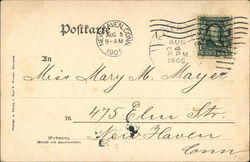 Postkarte
NEW HAVEN, CONN.
AUG 5
9-AM
1905
AUG
4
8 PM
1905
An
Miss Mary M. Mayer
in 475 Elm Str.
New Haven
Conn
Wohnung